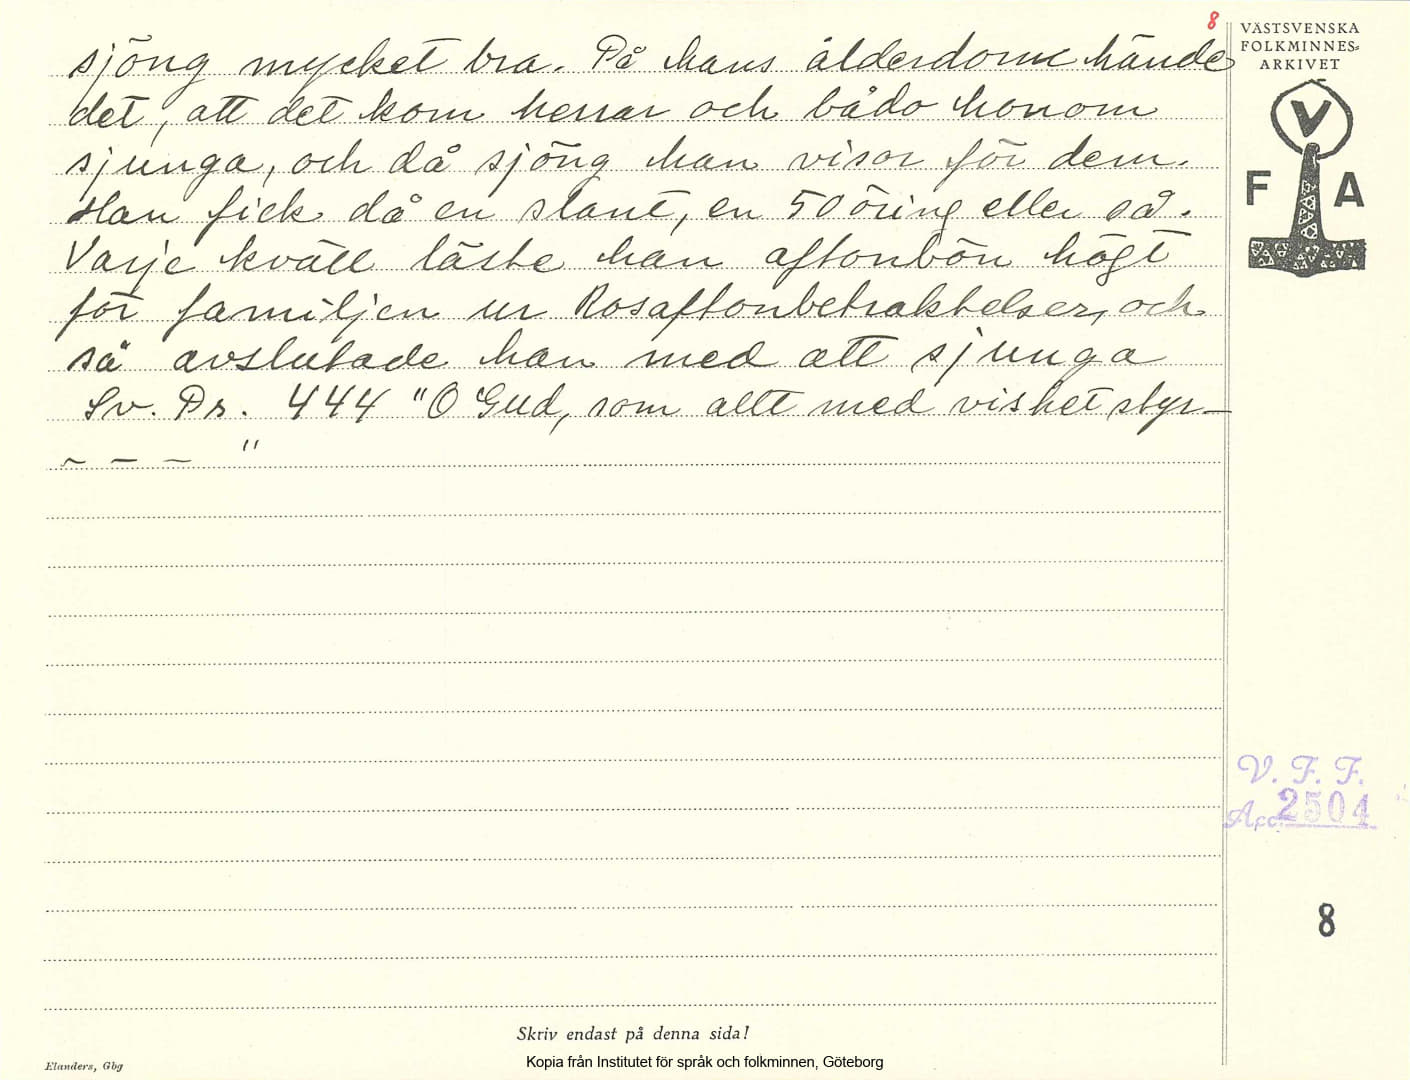 8
VÄSTSVENSKA
FOLKMINNES-
ARKIVET
V
F A
sjöng mycket bra. På hans ålderdom hände
det, att det kom herrar och bådo honom
sjunga, och då sjöng han visor för dem.
Han fick då en slant, en 50 öring eller så.
Varje kväll läste han aftonbön högt
för familjen ur Rosaftonbetraktelser, och
så avslutade han med att sjunga
Sv. Ps. 444 "O Gud, som allt med vishet styr—
– – – "
V. F. F.
Acc. 2504
8
Skriv endast på denna sida!
Elanders, Gbg
Kopia från Institutet för språk och folkminnen, Göteborg